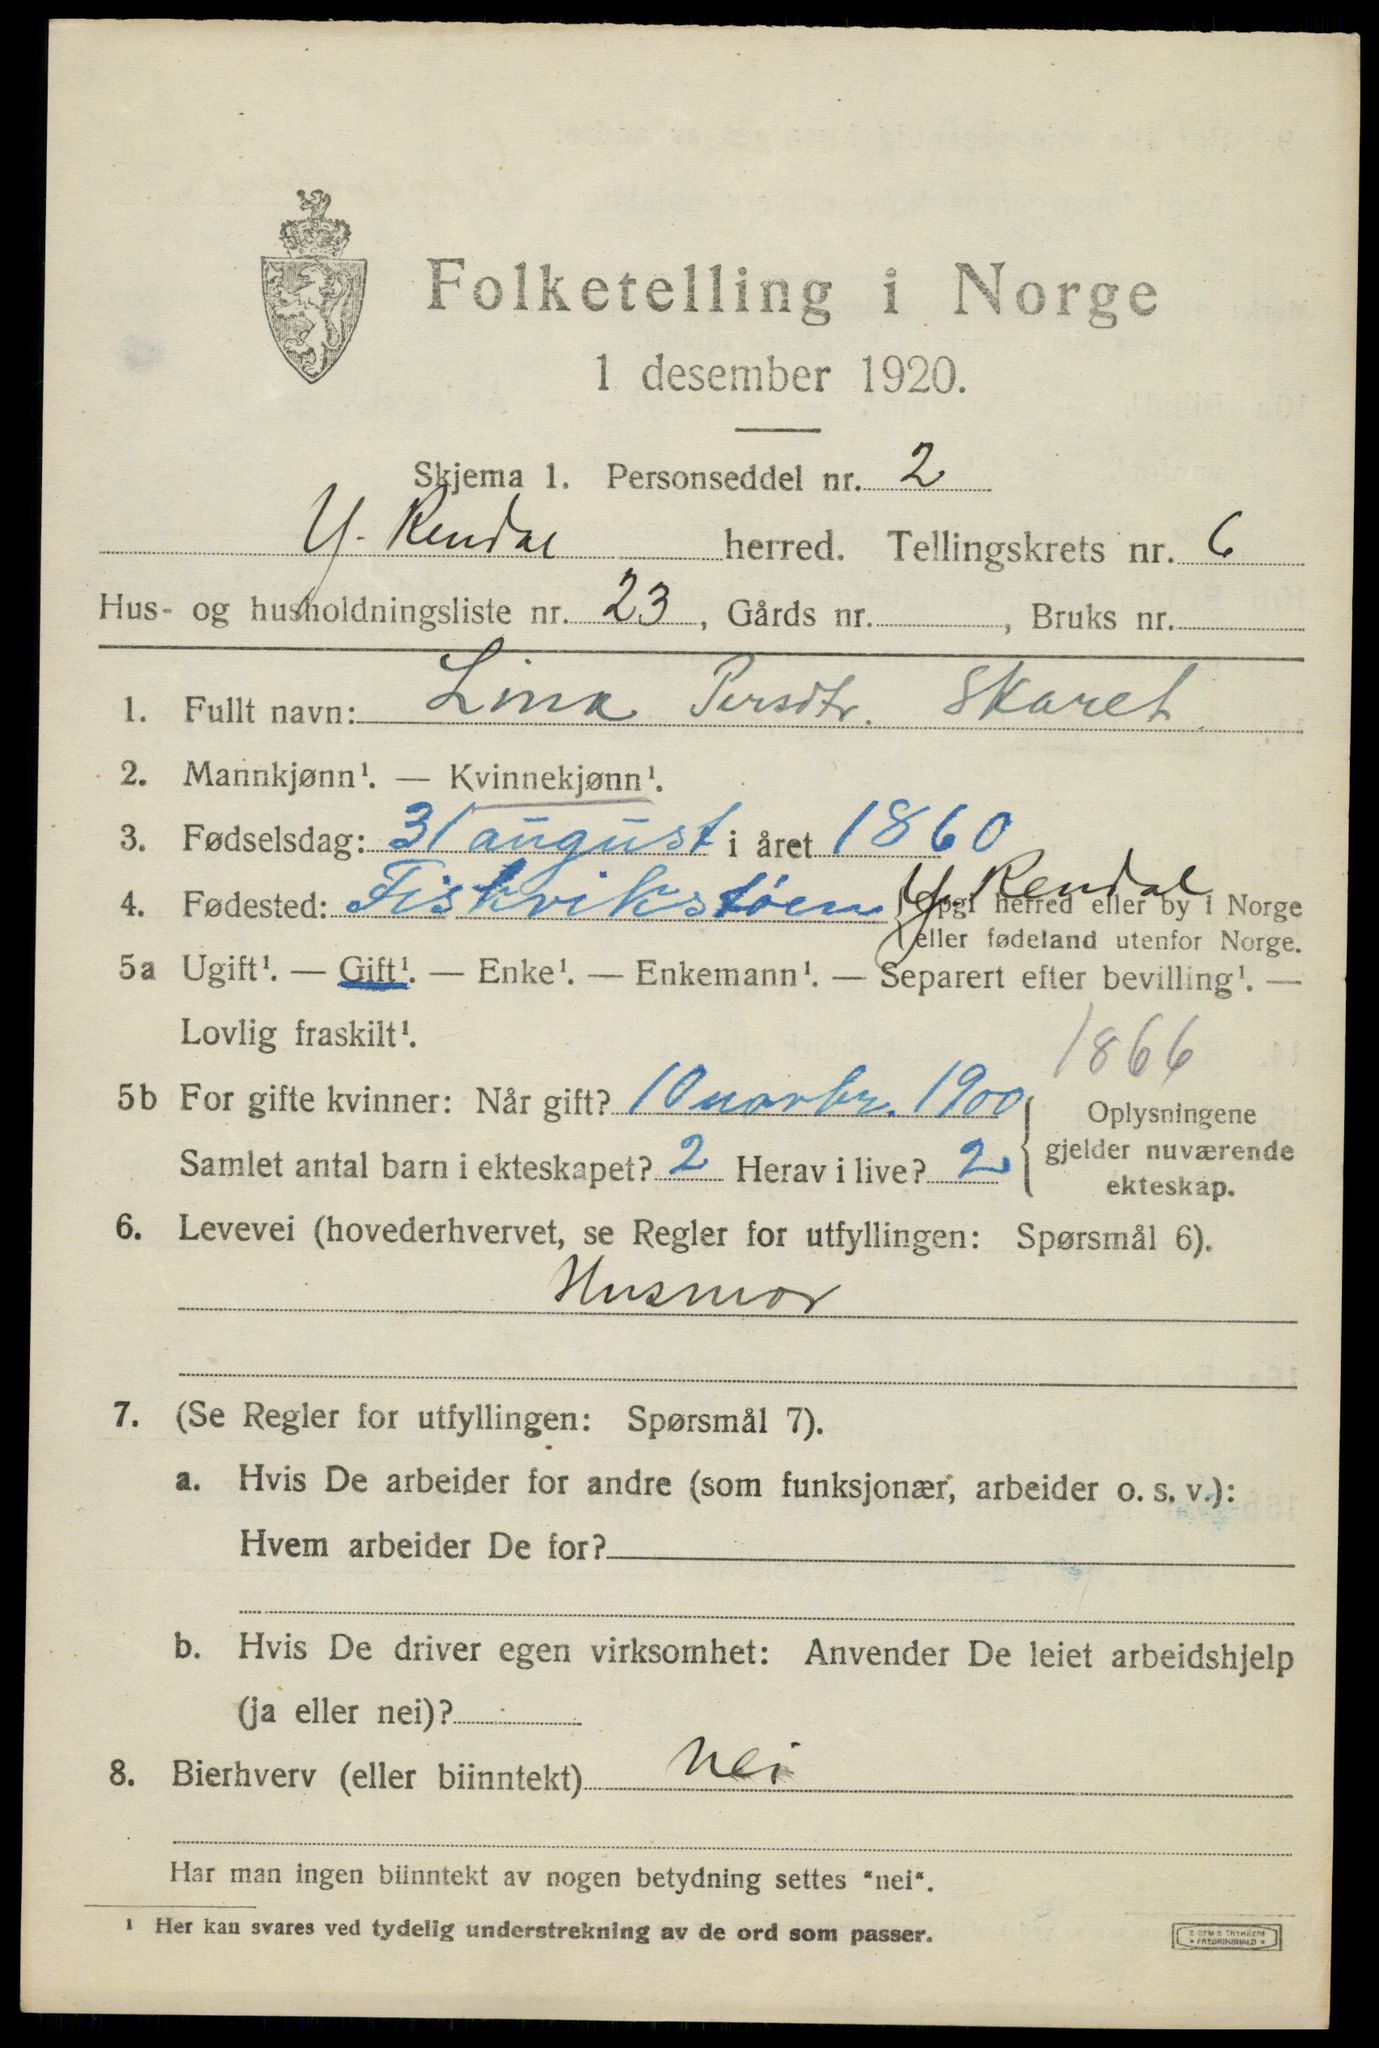 Folketelling i Norge
1 desember 1920.
Skjema 1. Personseddel nr. 2
Y. Rendal herred. Tellingskrets nr. 6
Hus- og husholdningsliste nr. 23, Gårds nr. , Bruks nr.
1. Fullt navn: Lina Persdtr. Skaret
2. Mannkjønn¹. — Kvinnekjønn¹.
3. Fødselsdag: 31 august i året 1860
4. Fødested: Fiskvikstøen Y. Rendal {Opgi herred eller by i Norge
eller fødeland utenfor Norge.
5a Ugift¹. — Gift¹. — Enke¹. — Enkemann¹. — Separert efter bevilling¹. —
Lovlig fraskilt¹.
1866
5b For gifte kvinner: Når gift? 10 novbr. 1900 { Oplysningene
Samlet antal barn i ekteskapet? 2 Herav i live? 2 gjelder nuværende
ekteskap.
6. Levevei (hovederhvervet, se Regler for utfyllingen: Spørsmål 6).
Husmor
7. (Se Regler for utfyllingen: Spørsmål 7).
a. Hvis De arbeider for andre (som funksjonær, arbeider o. s. v.):
Hvem arbeider De for?
b. Hvis De driver egen virksomhet: Anvender De leiet arbeidshjelp
(ja eller nei)?
8. Bierhverv (eller biinntekt) Nei
Har man ingen biinntekt av nogen betydning settes "nei".
¹ Her kan svares ved tydelig understrekning av de ord som passer.